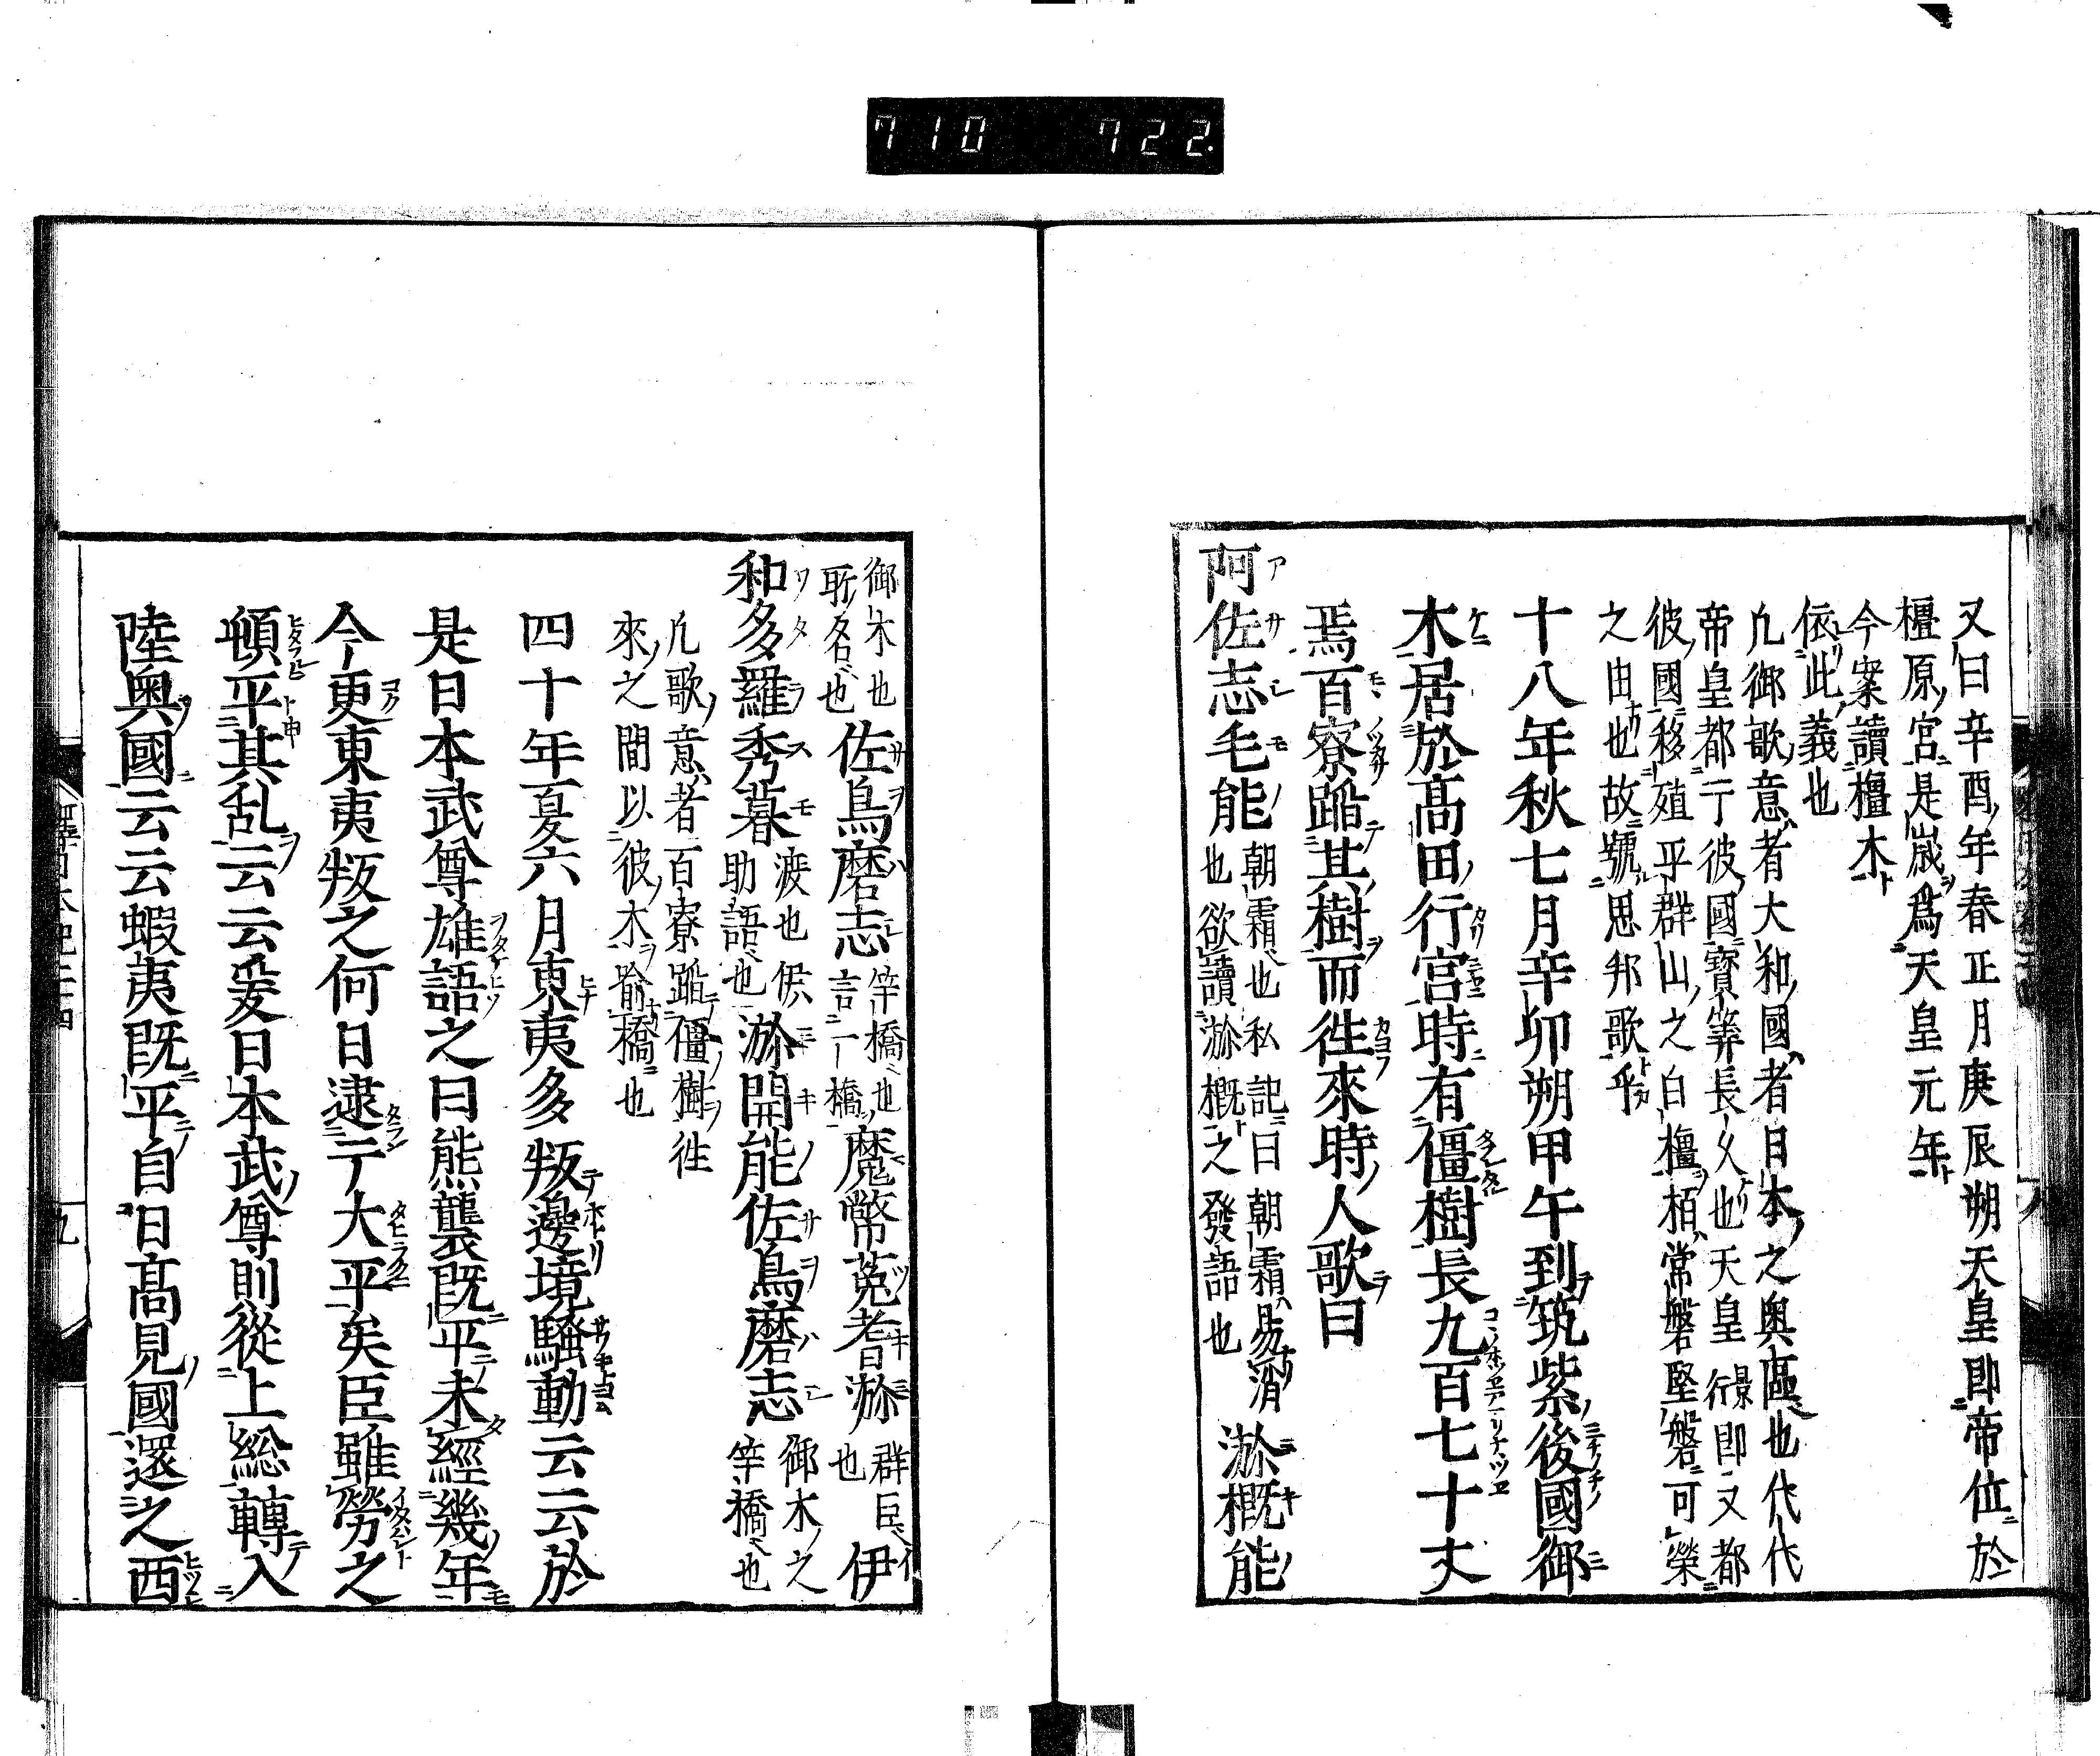 710 722.
又曰辛酉年春正月庚辰朔天皇即帝位於
橿原宮是歲爲天皇元年
今案讀橿木
依此義也
凢御歌意者大和國者日本之奥區也代代
帝皇都于彼國寳筭長久也天皇景行即又都
彼國移殖乎群山之白橿栢常磐堅磐可榮
之由也故號思邦歌乎
十八年秋七月辛卯朔甲午到筑紫後國御
木居於髙田行宮時有僵樹長九百七十丈
焉百寮蹈其樹而徃來時人歌曰
阿佐志毛能朝霜也私記曰朝霜易消也欲讀瀰概之發語也瀰概能
御木也所名也佐烏磨志竿橋也言一橋魔幣菟耆瀰群臣也伊
和多羅秀暮渡也候助語也瀰開能佐烏磨志御木之竿橋也
凢歌意者百寮蹈僵樹徃
來之間以彼木喻橋也
四十年夏六月東夷多叛邊境騷動云云於
是日本武尊雄語之曰熊襲既平未經幾年
今更東夷叛之何日逮于大平矣臣雖勞之
頓平其乱云云爰日本武尊則從上総轉入
陸奥國云云蝦夷既平自日髙見國還之西
九